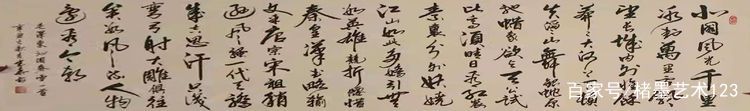 北国风光千里
冰封萬里雪
望长城内外惟
莽莽大河上下
失滔滔山舞银蛇原
驰蜡象欲与天公试
比高须晴日看红装
素裹分外妖娆
江山如此多娇引无
数英雄竞折腰惜
秦皇汉武略输
文采唐宗宋祖稍
逊风骚一代天骄
成吉思汗只识
弯弓射大雕俱往
矣数风流人物
还看今朝
毛泽东沁园春雪一首
百家号/楮墨艺术123